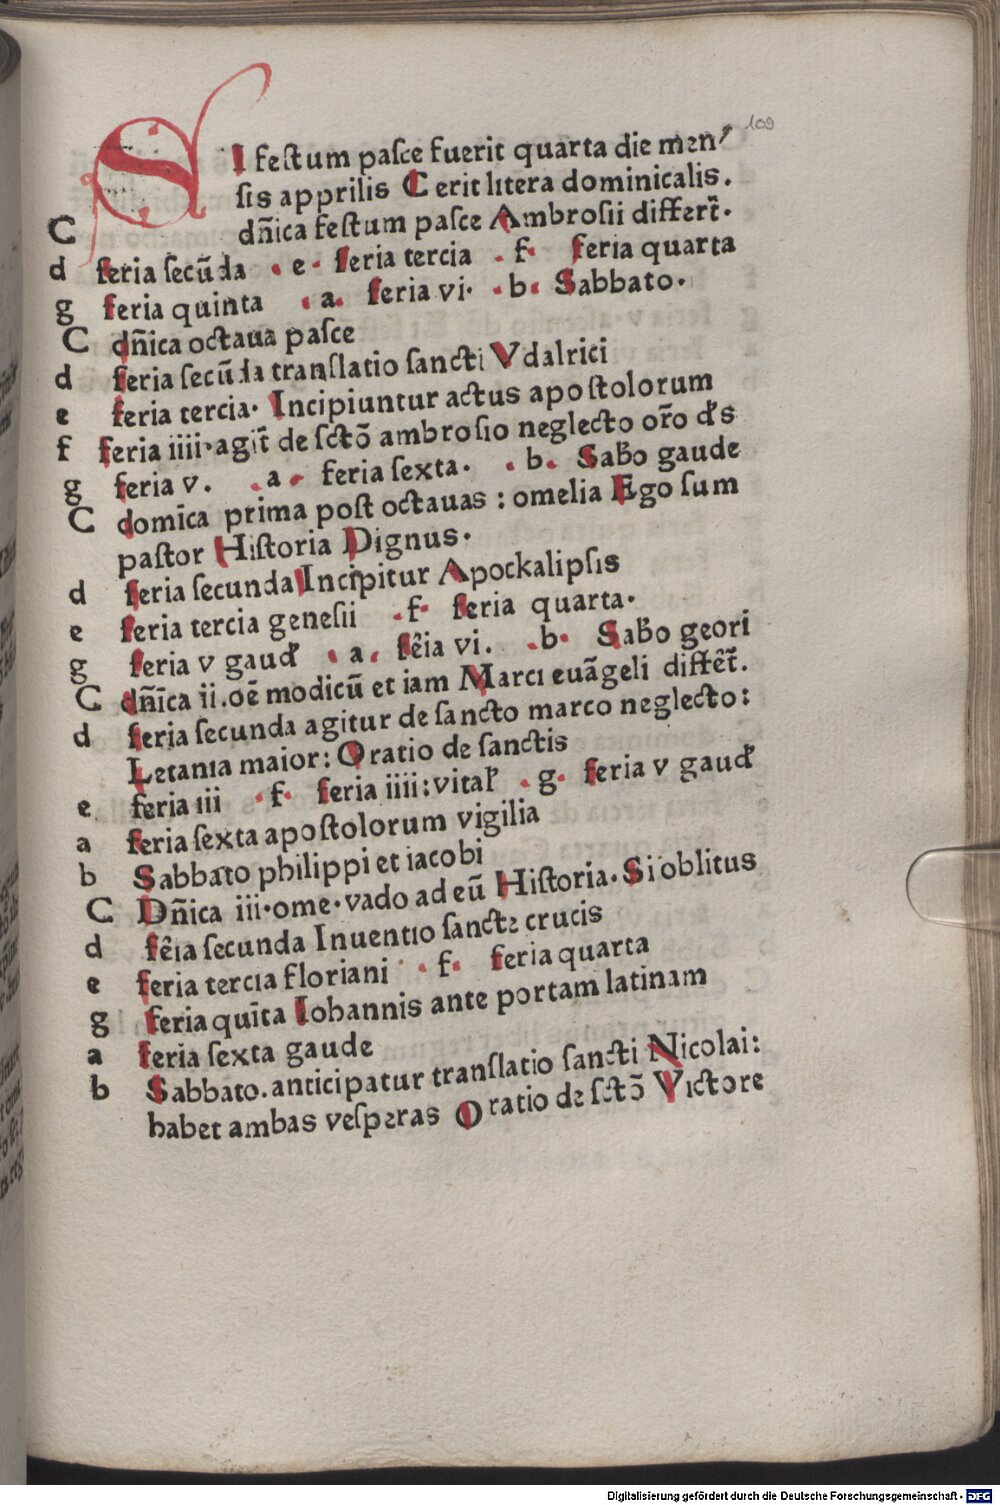 109
SI feſtum paſce fuerit quarta die men⸗
ſis apprilis C erit litera dominicalis.
C dn̄ica feſtum paſce Ambroſii differt̄.
d feria ſecūda · e · feria tercia · f · feria quarta
g feria quinta · a · feria vi · · b · Sabbato ·
C dn̄ica octaua paſce
d feria ſecūda tranſlatio ſancti Vdalrici
e feria tercia · Incipiuntur actus apoſtolorum
f feria iiii · agit̄ de ſctō ambroſio neglecto or̄o d's
g feria v . · a · feria ſexta · · b · Sab̄o gaude
C domīca prima poſt octauas : omelia Ego ſum
paſtor Hiſtoria Dignus ·
d feria ſecunda Incipitur Apockalipſis
e feria tercia geneſii · f · feria quarta ·
g feria v gaud' · a · fēia vi . · b · Sab̄o geori
C dn̄īca ii . oē modicū et iam Marci euāgeli diffēt̄.
d feria ſecunda agitur de ſancto marco neglecto :
Letania maior : Oratio de ſanctis
e feria iii · f · feria iiii : vital' · g · feria v gaud'
a feria ſexta apoſtolorum vigilia
b Sabbato philippi et iacobi
C Dn̄ica iii · ome · vado ad eū Hiſtoria · Si oblitus
d fēia ſecunda Inuentio ſancte crucis
e feria tercia floriani · f · feria quarta
g feria quīta Iohannis ante portam latinam
a feria ſexta gaude
b Sabbato . anticipatur tranſlatio ſancti Nicolai :
habet ambas veſperas Oratio de ſctō Victore
Digitalisierung gefördert durch die Deutsche Forschungsgemeinschaft - DFG